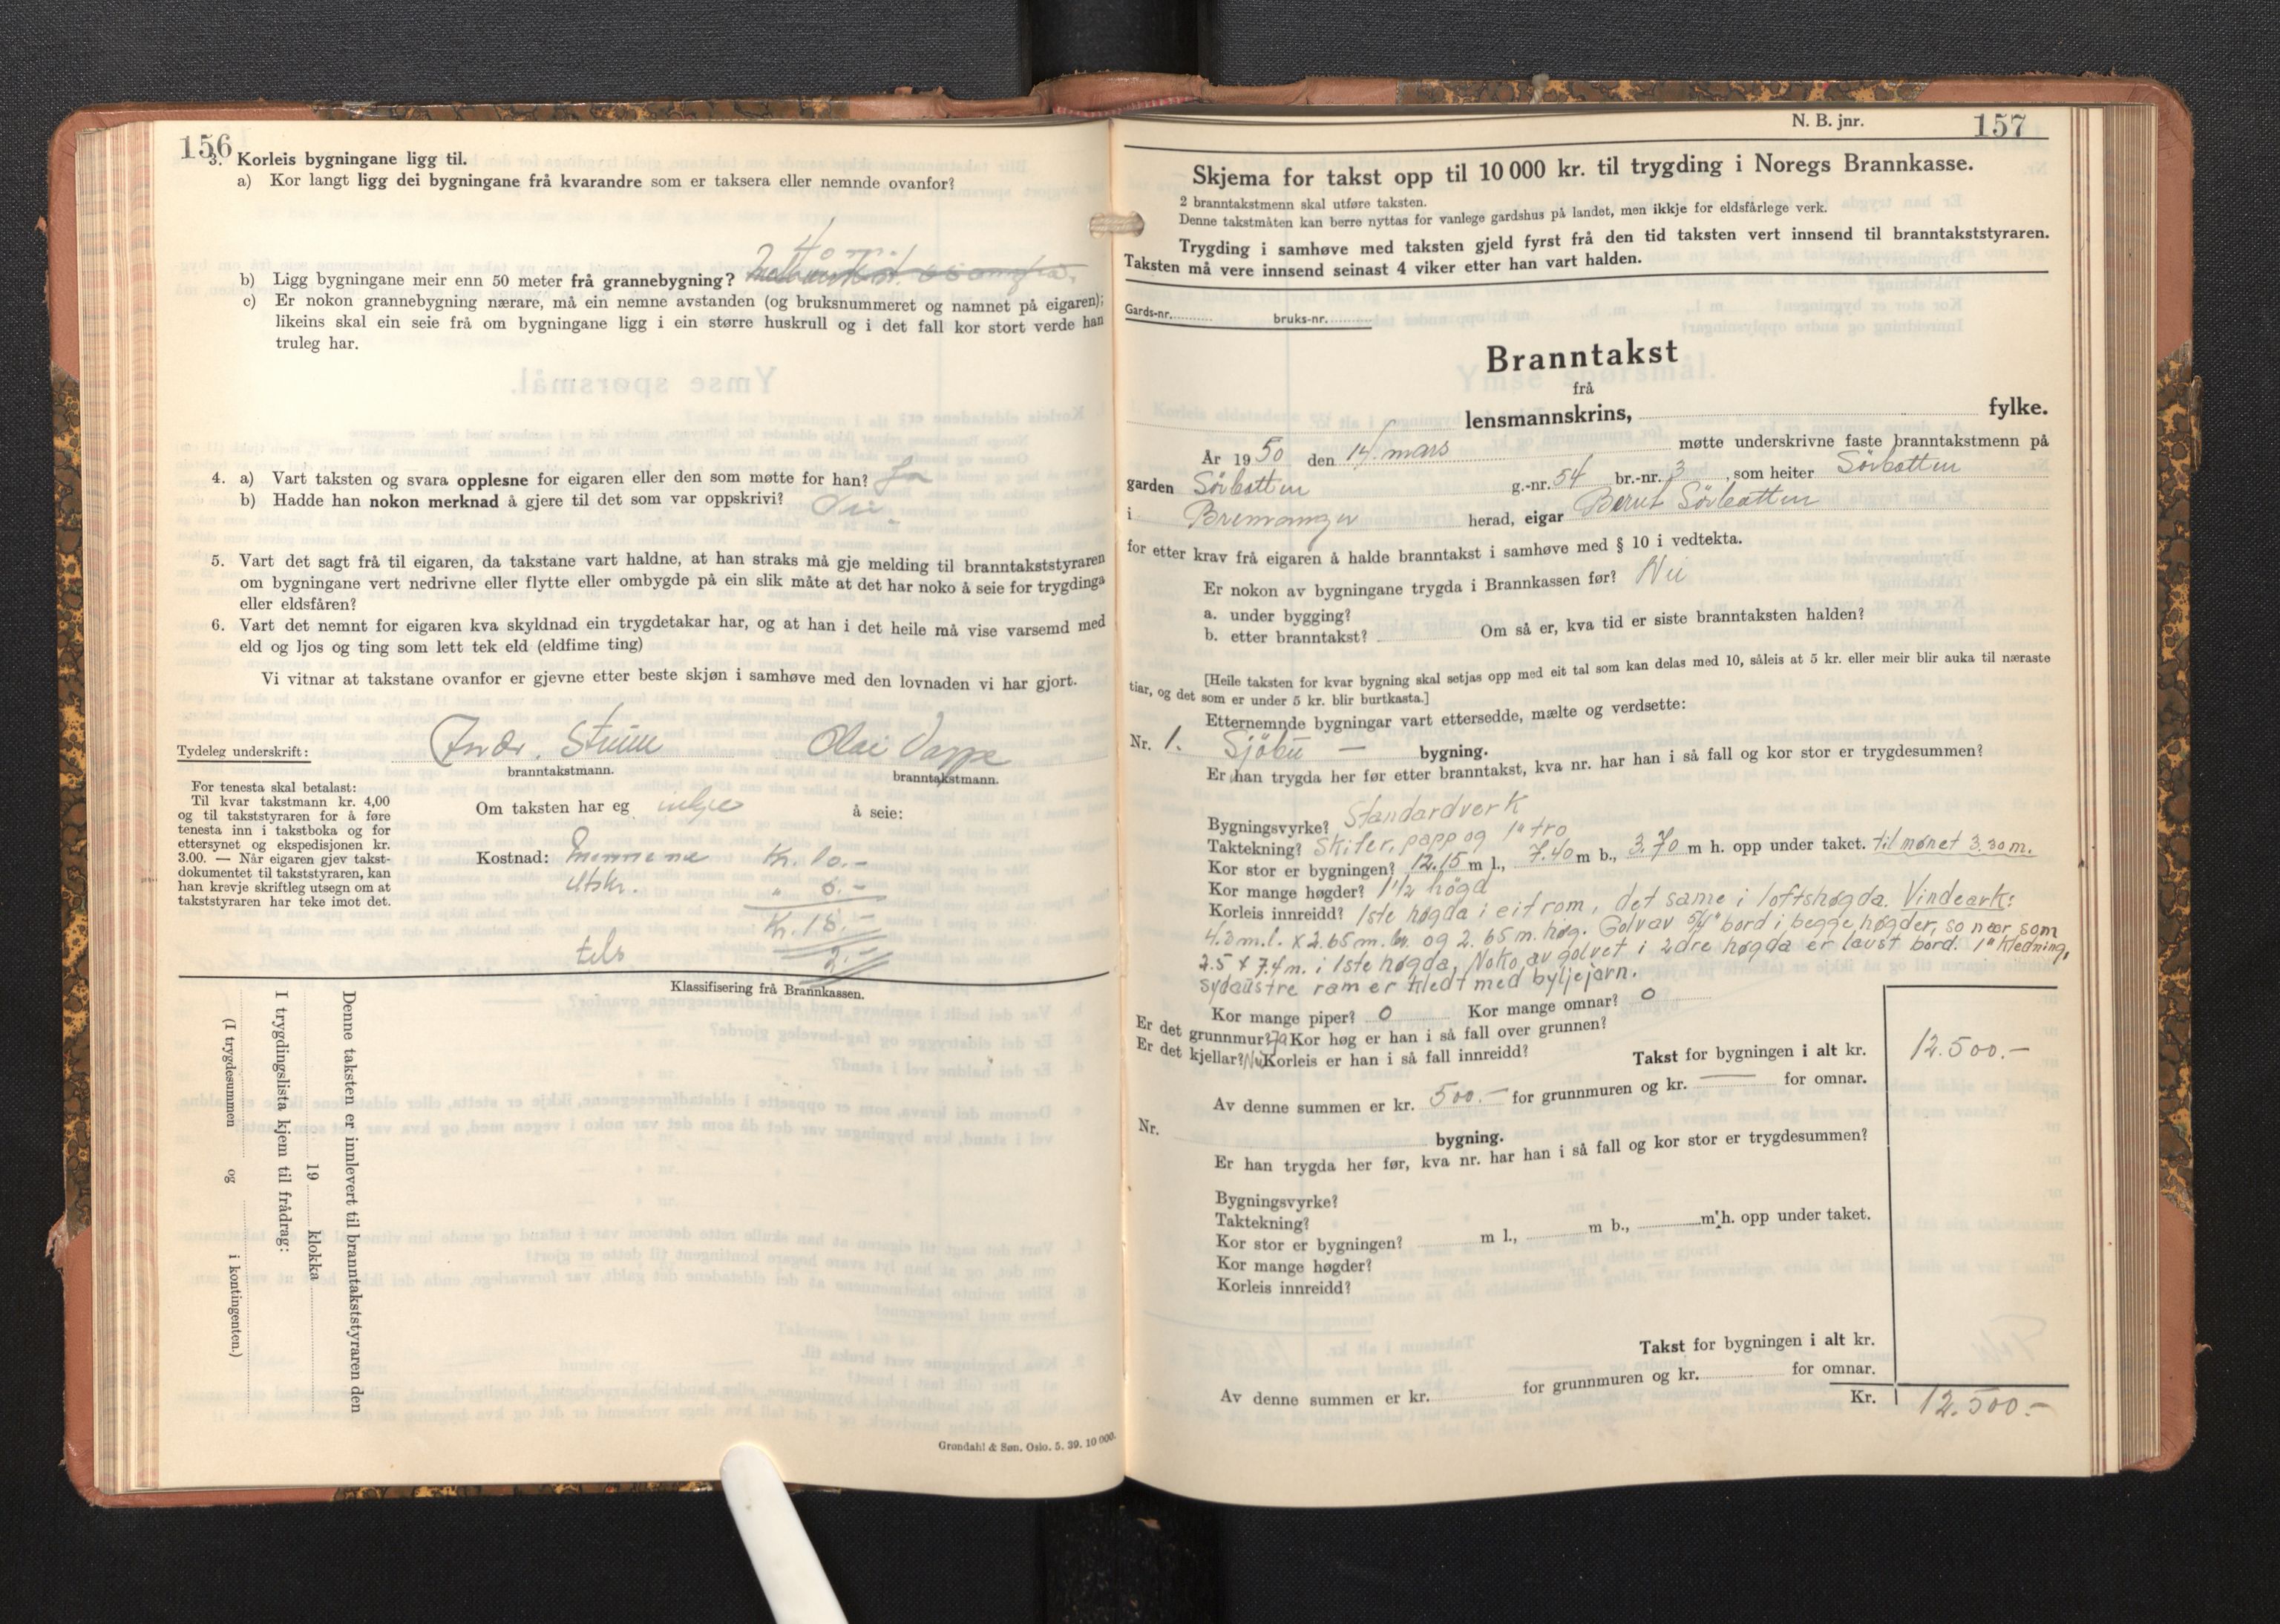 156
3. Korleis bygningane ligg til.
a) Kor langt ligg dei bygningane frå kvarandre som er taksera eller nemnde ovanfor?
40 m.
b) Ligg bygningane meir enn 50 meter frå grannebygning?
c) Er nokon grannebygning nærare, må ein nemne avstanden (og bruksnummeret og namnet på eigaren);
likeins skal ein seie frå om bygningane ligg i ein større huskrull og i det fall kor stort verde han
truleg har.
4. a) Vart taksten og svara opplesne for eigaren eller den som møtte for han? Ja
b) Hadde han nokon merknad å gjere til det som var oppskrivi? Nei
5. Vart det sagt frå til eigaren, da takstane vart haldne, at han straks må gje melding til branntakststyraren
om bygningane vert nedrivne eller flytte eller ombygde på ein slik måte at det har noko å seie for trygdinga
eller eldsfåren?
6. Vart det nemnt for eigaren kva skyldnad ein trygdetakar har, og at han i det heile må vise varsemd med
eld og ljos og ting som lett tek eld (eldfime ting)
Vi vitnar at takstane ovanfor er gjevne etter beste skjøn i samhøve med den lovnaden vi har gjort.
Tydeleg underskrift: Olai Vappe
branntakstmann. branntakstmann.
For tenesta skal betalast:
Til kvar takstmann kr. 4,00
og til takststyraren for å føre
tenesta inn i takstboka og for
ettersynet og ekspedisjonen kr.
3.00. — Når eigaren gjev takst-
dokumentet til takststyraren, kan
han krevje skriftleg utsegn om at
takststyraren har teke imot det.
Om taksten har eg inkje å seie:
Kostnad: Mennene Kr. 10.-
Utskr. " 5.-
Kr. 15.-
tels 2.-
Klassifisering frå Brannkassen.
Denne taksten er innlevert til branntakststyraren den
19 klokka
I trygdingslista kjem til frådrag:
(I trygdesummen og i kontingenten.)
Grøndahl & Søn. Oslo. 5. 39. 10 000.
N. B. jnr. 157
Skjema for takst opp til 10 000 kr. til trygding i Noregs Brannkasse.
2 branntakstmenn skal utføre taksten.
Denne takstmåten kan berre nyttas for vanlege gardshus på landet, men ikkje for eldsfårlege verk.
Trygding i samhøve med taksten gjeld fyrst frå den tid taksten vert innsend til branntakststyraren.
Taksten må vere innsend seinast 4 viker etter han vart halden.
Gards-nr. bruks-nr.
Branntakst
frå
lensmannskrins, fylke.
År 1950 den 14. mars møtte underskrivne faste branntakstmenn på
garden Sörbotten g.-nr. 54 br.-nr. 3, som heiter Sörbotten
i Bremanger herad, eigar Bernt Sörbotten
for etter krav frå eigaren å halde branntakst i samhøve med § 10 i vedtekta.
Er nokon av bygningane trygda i Brannkassen før? Nei
a. under bygging?
b. etter branntakst? Om så er, kva tid er siste branntaksten halden?
[Heile taksten for kvar bygning skal setjas opp med eit tal som kan delas med 10, såleis at 5 kr. eller meir blir auka til næraste
tiar, og det som er under 5 kr. blir burtkasta.]
Etternemnde bygningar vart ettersedde, mælte og verdsette:
Nr. 1. Sjöbu — bygning.
Er han trygda her før etter branntakst, kva nr. har han i så fall og kor stor er trygdesummen?
Bygningsvyrke? Standardverk
Taktekning? Skifer, papp og 1" tro
Kor stor er bygningen? 12.15 m l., 7.40 m b., 3.70 m h. opp under taket. til mønet 3.30 m.
Kor mange høgder? 1 1/2 høgd
Korleis innreidd? 1ste høgda i eit rom, det same i loftshøgda. Vindeark:
4.0 m.l. x 2.65 m. br. og 2.65 m. høg. Golv av 5/4" bord i begge høgder, so nær som
2.5 x 7.4 m. i 1ste høgda. Noko av golvet i 2dre høgda er laust bord. 1" kledning,
sydaustre ram er kledt med byljejarn.
Kor mange piper? 0 Kor mange omnar? 0
Er det grunnmur? Ja Kor høg er han i så fall over grunnen?
Er det kjellar? Nei Korleis er han i så fall innreidd?
Takst for bygningen i alt kr. 12.500.-
Av denne summen er kr. 500.- for grunnmuren og kr. — for omnar.
Nr. bygning.
Er han trygda her før, kva nr. har han i så fall og kor stor er trygdesummen?
Bygningsvyrke?
Taktekning?
Kor stor er bygningen? m l., m b., m h. opp under taket.
Kor mange høgder?
Korleis innreidd?
Takst for bygningen i alt kr.
Av denne summen er kr. for grunnmuren og kr. for omnar.
Kr. 12.500.-